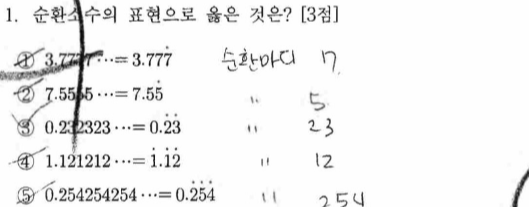 1. 순환소수의 표현으로 옳은 것은? [3점]
① 3.7777⋯= 3.777̇ 순환마디 7
② 7.5555⋯= 7.55̇ 〃 5
③ 0.232323⋯= 0.2̇3̇ 〃 23
④ 1.121212⋯= 1̇.1̇2̇ 〃 12
⑤ 0.254254254⋯= 0.2̇5̇4̇ 〃 254